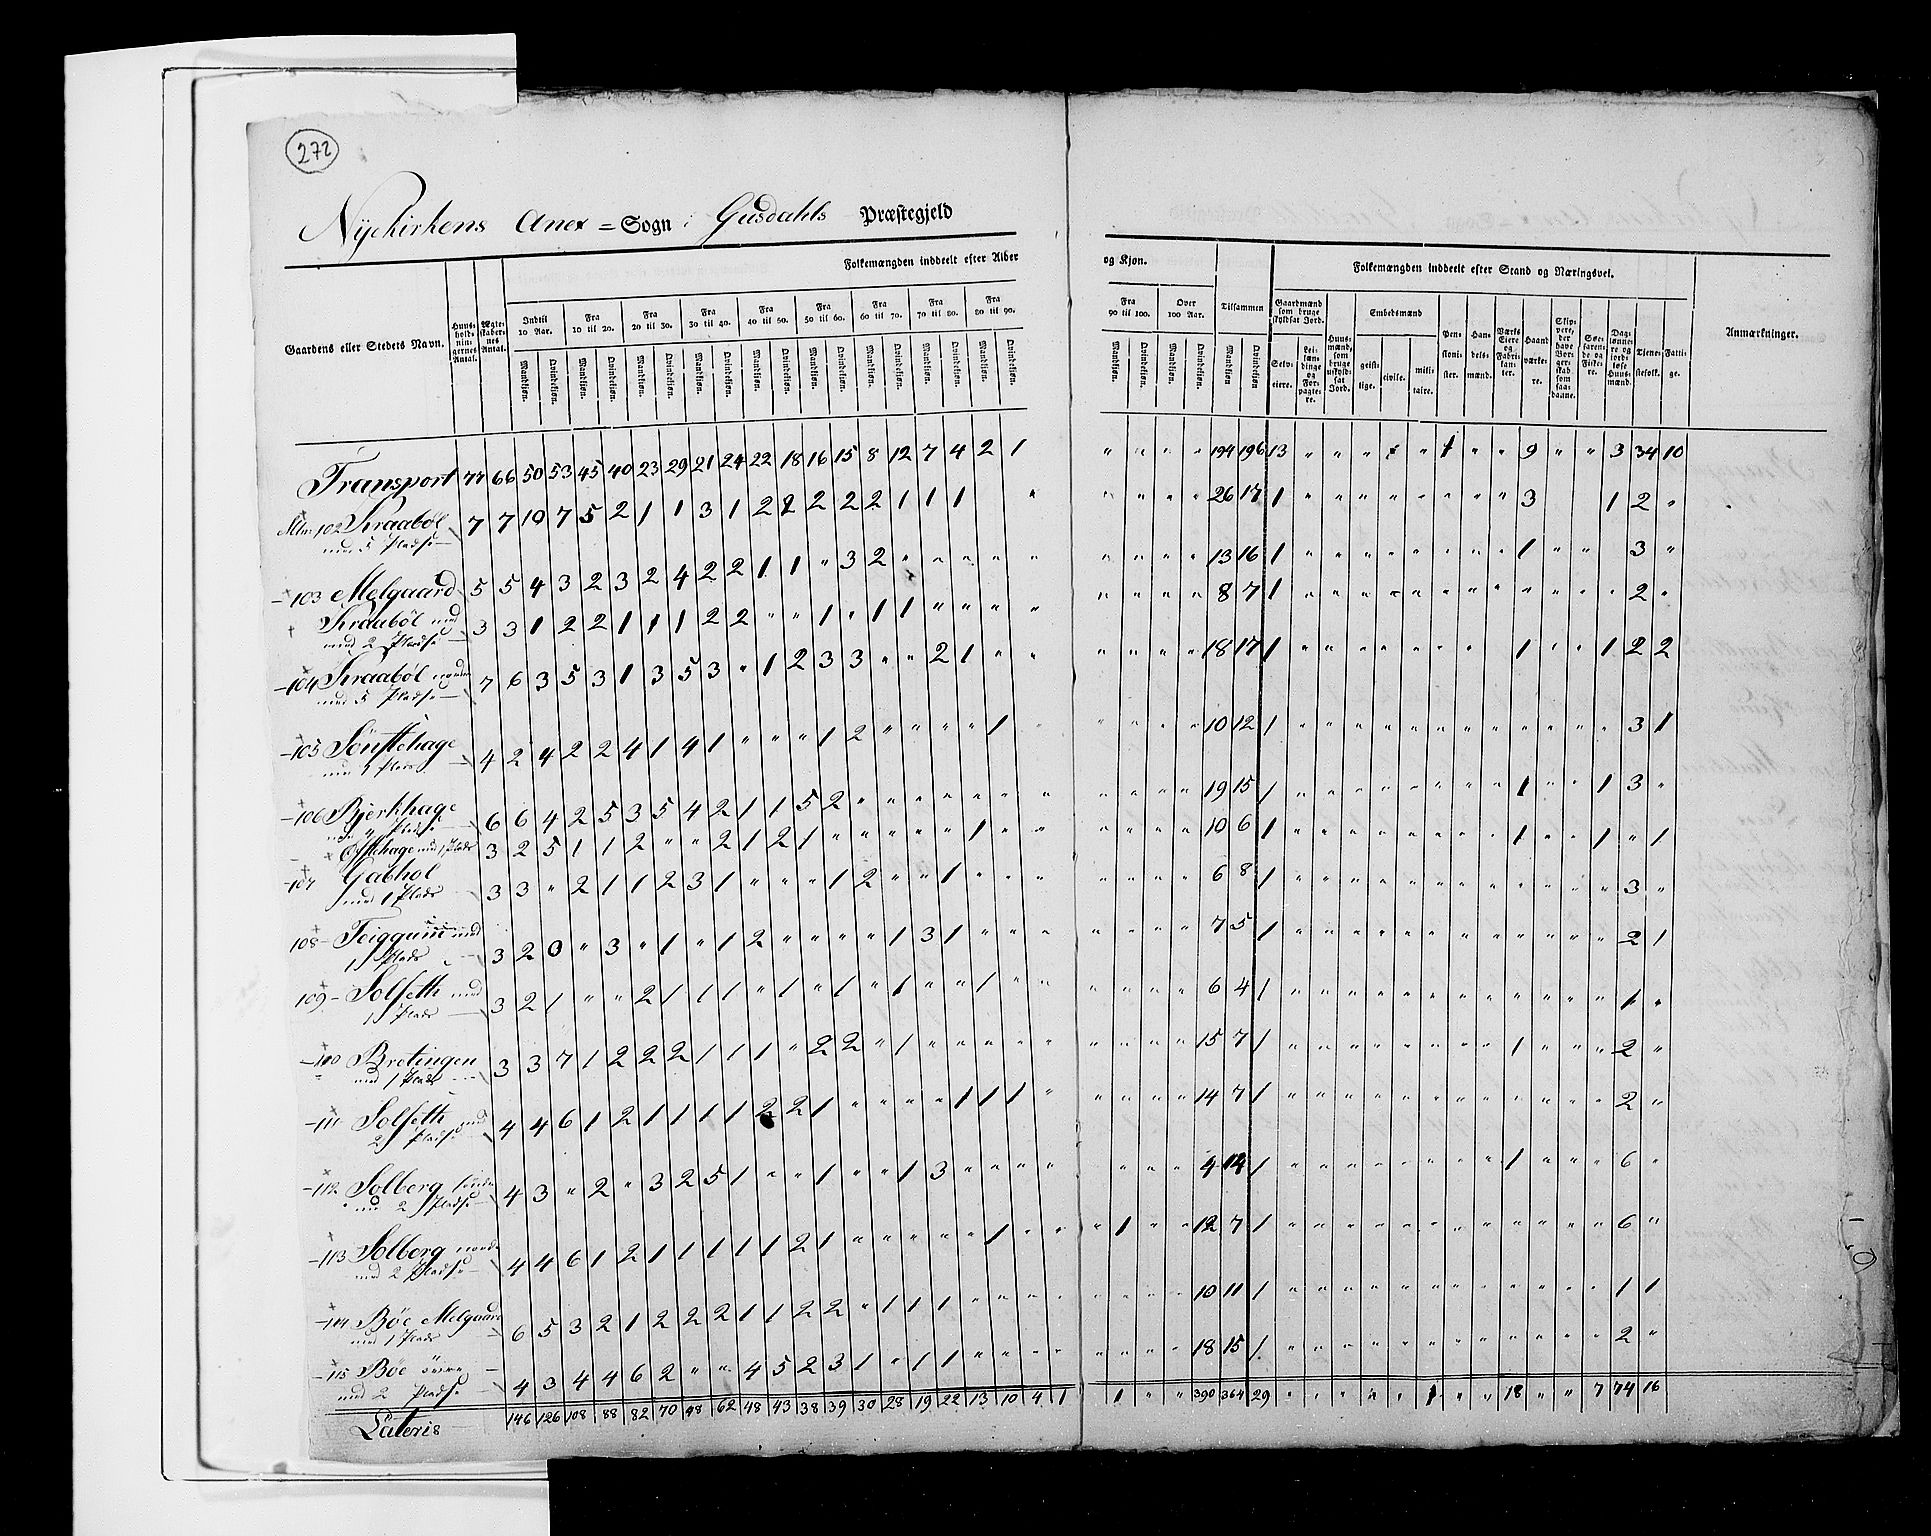 272
Nyekirkens Anex = Sogn i Gusdahls Præstegjeld
Gaardens eller Stedets Navn. Huus-holdnin-gernes Antal. Ægte-skaber-nes Antal. Folkemængden inddeelt efter Alder og Kjøn. Folkemængden inddeelt efter Stand og Næringsvei. Anmærkninger.
Indtil 10 Aar. Fra 10 til 20. Fra 20 til 30. Fra 30 til 40. Fra 40 til 50. Fra 50 til 60. Fra 60 til 70. Fra 70 til 80. Fra 80 til 90. Fra 90 til 100. Over 100 Aar. Tilsammen
Mandkjøn. Qvindekjøn. Mandkjøn. Qvindekjøn. Mandkjøn. Qvindekjøn. Mandkjøn. Qvindekjøn. Mandkjøn. Qvindekjøn. Mandkjøn. Qvindekjøn. Mandkjøn. Qvindekjøn. Mandkjøn. Qvindekjøn. Mandkjøn. Qvindekjøn. Mandkjøn. Qvindekjøn. Mandkjøn. Qvindekjøn. Mandkjøn. Qvindekjøn.
Gaardmænd som bruge skyldsat Jord. Selv-eiere. Lei-læn-dinge og For-pagte-re. Huus-mænd, som bruge uskyld-sat Jord. Embedsmænd geist-lige. civile. mili-taire. Pen-sioni-ster. Han-dels-mænd. Værks Eiere og Fabri-kan-ter. Haand værke-re. Skip-pere, der have Bor-ger-skab som saa-danne. Søe-farende og Fiske-re. Dag-lønne-re og jord-løse Huus-mænd. Tjene-stefolk. Fatti-ge.
Transport 77 66 50 53 45 40 23 29 21 24 22 18 16 15 8 12 7 4 2 1 " " " " 194 196 13 " " " " 1 " " 9 " " 3 34 10
102 Kraabøl 7 7 10 7 5 2 1 1 3 1 2 2 2 2 2 1 1 1 " 26 17 1 3 1 2 "
med 5 Pladse
103 Melgaard 5 5 4 3 2 3 2 4 2 2 1 1 " 3 2 " " " " " 13 16 1 1 3 "
Kraabøl
med 2 Pladse 3 3 1 2 2 1 1 1 2 2 " " 1 " 1 1 " " " " 8 7 1 2 "
104 Kraabøl
med 5 Pladse 7 6 3 5 3 1 3 5 3 " 1 2 3 3 " " 2 1 " " 18 17 1 1 1 2 2
105 Sønstehage 4 2 4 2 2 4 1 4 1 " " " 1 2 " " " " 1 " 10 12 1 3 1
106 Bjerkhage 6 6 4 2 5 3 5 4 2 1 1 5 2 " " " " " " " 19 15 1 1 1 3 "
Pladse
Offtehage med 1 Plads 3 2 5 1 1 2 " " 2 1 2 1 " " " " " 1 " " 10 6 1 1 1 " 1
107 Gabhol 3 3 " 2 1 1 2 3 1 " " " 1 2 " " 1 " " " 6 8 1 3 "
med 1 Plads
108 Teiggum med 3 2 0 " 3 " 1 " 1 2 " " " " 1 3 1 " " " 7 5 1 2 1
1 Plads
109 Solfeth med 3 2 1 " " 2 1 1 1 " 1 " 1 " 1 " " 1 " " 6 4 1 1 "
1 Plads
110 Bretingen 3 3 7 1 2 2 2 1 1 1 " 2 2 " 1 " " " " " 15 7 1 1 2 "
med 1 Plads
111 Solfeth med 4 4 6 1 2 1 1 1 1 2 2 1 " " " " 1 1 1 " 14 7 1 2 "
2 Pladse
112 Solberg 4 3 " 2 " 3 2 5 1 " " 1 " " 1 3 " " " " 4 14 1 1 6 "
med 2 Pladse
113 Solberg 4 4 6 1 2 1 1 1 1 1 2 1 " " " " " 1 " " 1 12 7 1 6 "
med 2 Pladse
114 Bøe Melgaard 6 5 3 2 1 2 2 2 1 1 2 2 " 1 1 1 " " " " 10 11 1 1 1
med 1 Plads
115 Bøe 4 3 4 4 6 2 " " 4 5 2 3 1 " 1 1 " " " " 18 15 1 2 "
med 2 Pladse
Lateris 146 126 108 88 82 70 48 62 48 43 38 39 30 28 19 22 13 10 4 1 1 " " 390 364 29 " " " " " " 1 " " 18 " " 7 74 16